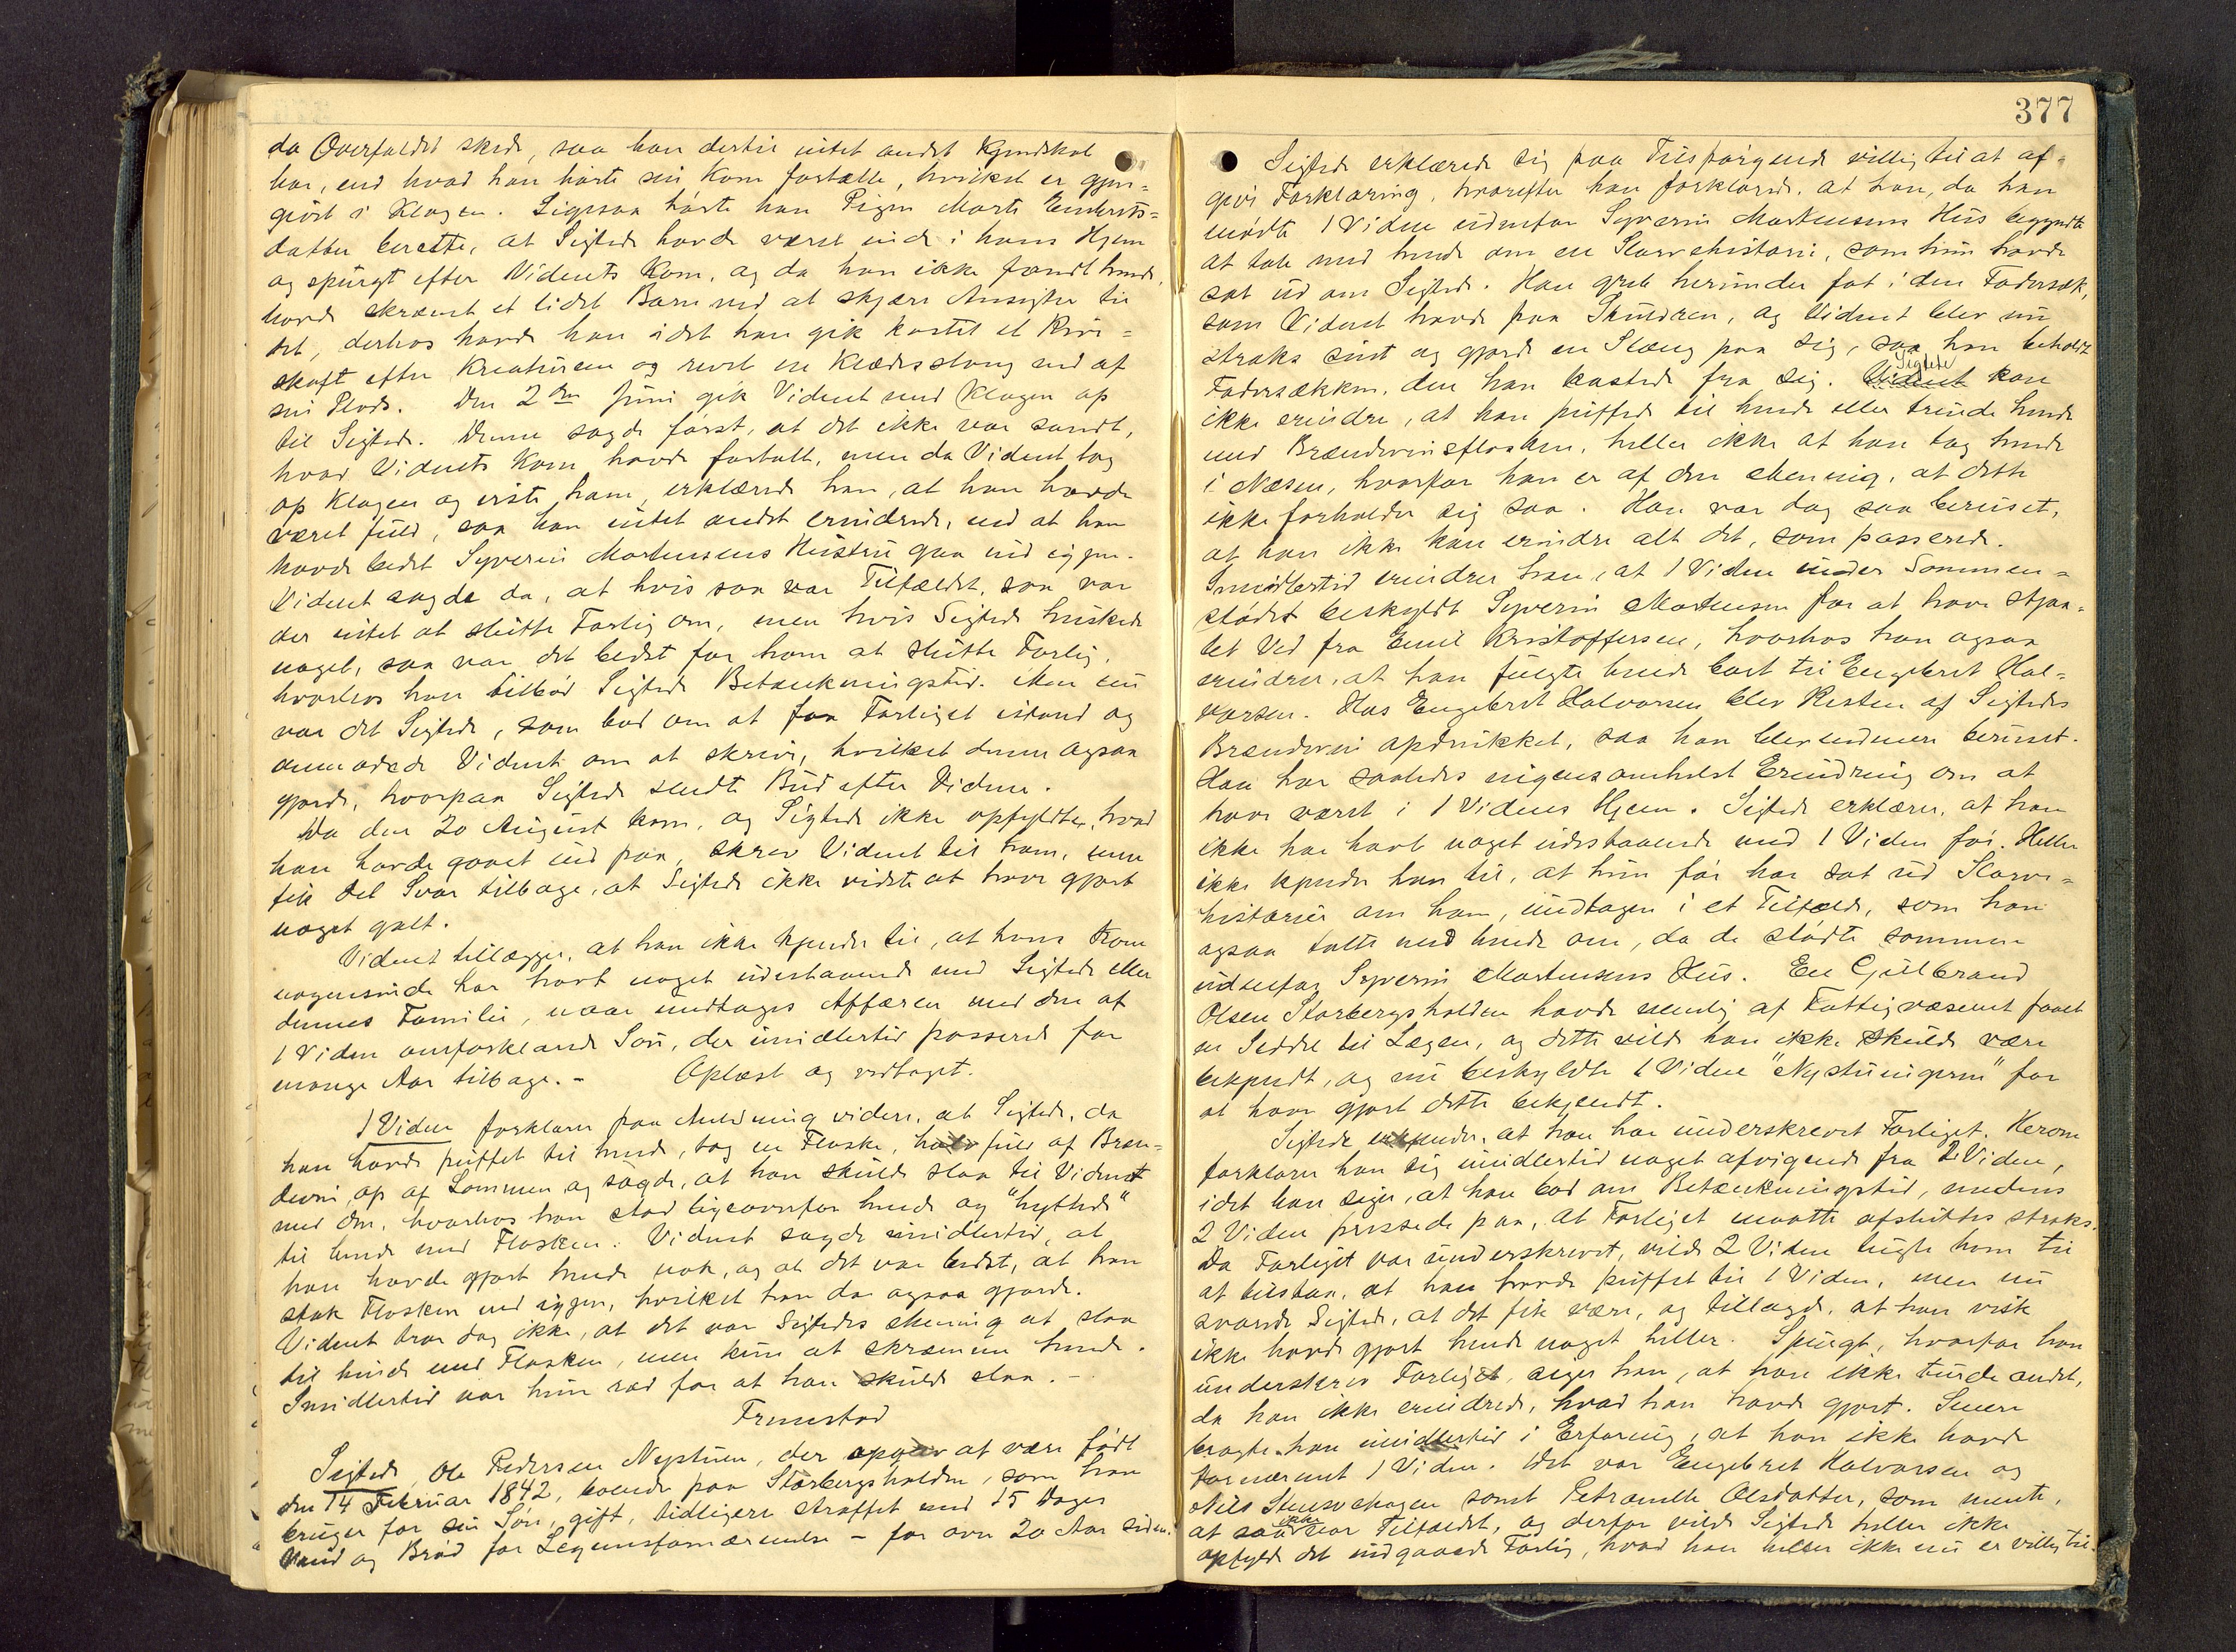 da Overfaldet skede, saa han dertil intet andet Kjendskab
har, end hvad han hørte sin Kone fortælle, hvilket er gjen-
givet i Klagen. Ligesaa hørte han Pigen Marte Embrets-
datter berette, at Sigtede havde været inde i hans Hjem
og spurgt efter Vidnets Kone, og da han ikke fandt hende,
havde skræmt et lidet Barn ved at skjære Ansigter til
det, derhos havde han idet han gik kastet et
skaft efter Kreaturene og revet en Klædesstang ned af
sin Plads. Den 2den Juni gik Vidnet med Klagen op
til Sigtede. Denne sagde først, at det ikke var sandt,
hvad Vidnets Kone havde fortalt, men da Vidnet tog
op Klagen og viste ham, erklærede han, at han havde
været fuld, saa han intet andet erindrede, end at han
havde bedet Syverin Martinsens Hustru gaa ind igjen.
Vidnet sagde da, at hvis saa var Tilfældet, saa var
der intet at slutte Forlig om, men hvis Sigtede huskede
noget, saa var det bedst for ham at slutte Forlig,
hvorhos han tilbød Sigtede Betænkningstid. Men nu
var det Sigtede, som bad om at faa Forliget istand og
anmodede Vidnet om at skrive, hvilket denne ogsaa
gjorde, hvorpaa Sigtede sendte Bud efter Vidner.
Da den 20 August kom, og Sigtede ikke opfyldte, hvad
han havde gaaet ind paa, skrev Vidnet til ham, men
fik det Svar tilbage, at Sigtede ikke vidste at have gjort
noget galt.
Vidnet tillægger, at han ikke kjender til, at hans Kone
nogensinde har havt noget udestaaende med Sigtede eller
dennes Familie, naar undtages Affæren med den af
1 Vidne omforklarede Søn, der imidlertid passerede for
mange Aar tilbage. - Oplæst og vedtaget.
1 Vidne forklarer paa Anledning videre, at Sigtede, da
han havde puffet til hende, tog en Flaske, halv fuld af Bræn-
devin, op af Lommen og sagde, at han skulde slaa til Vidnet
med den, hvorhos han stod ligeoverfor hende og "hyttede"
til hende med Flasken. Vidnet sagde imidlertid, at
han havde gjort hende nok, og at det var bedst, at han
stak Flasken ned igjen, hvilket han da ogsaa gjorde.
Vidnet tror dog ikke, at det var Sigtedes Mening at slaa
til hende med Flasken, men kun at skræmme hende.
Imidlertid var hun ræd for at han skulde slaa. -
Fremstod
Sigtede, Ole Pedersen Nystuen, der opgav at være født
den 14 Februar 1842, boende paa Storbergsholden, som han
bruger for sin Søn, gift, tidligere straffet med 15 Dages
Vand og Brød for Legemsfornærmelse - for over 20 Aar siden.
377
Sigtede erklærede sig paa Tilspørgende villig til at af-
give Forklaring, hvorefter han forklarede, at han, da han
mødte 1 Vidne udenfor Syverin Martinsens Hus begyndte
at tale med hende om en Skarvehistorie, som hun havde
sat ud om Sigtede. Han greb herunder fat i den Fodersæk,
som Vidnet havde paa Skuldren, og Vidnet blev nu
straks sint og gjorde en Slæng paa sig, saa han beholdt
Fodersækken, den han kastede fra sig. Sigtede kan
ikke erindre, at han puffede til hende eller truede hende
med Brændevinsflasken, heller ikke at han tog hende
i Næsen, hvorfor han er af den Mening, at dette
ikke forholder sig saa. Han var dog saa beruset,
at han ikke kan erindre alt det, som passerede.
Imidlertid erindrer han, at 1 Vidne under Sammen-
stødet beskyldte Syverin Martinsen for at have stjaa-
let Ved fra Emil Kristoffersen, hvorhos han ogsaa
erindrer, at han fulgte hende bort til Engebret Hal-
vorsen. Hos Engebret Halvorsen blev Resten af Sigtedes
Brændevin opdrukket, saa han blev endmere beruset.
Han har saaledes ingensomhelst Erindring om at
have været i 1 Vidnes Hjem. Sigtede erklærer, at han
ikke har havt noget udestaaende med 1 Vidne før. Heller
ikke kjender han til, at hun før har sat ud Skarve-
historier om ham, undtagen i et Tilfælde, som han
ogsaa talte med hende om, da de stødte sammen
udenfor Syverin Martinsens Hus. En Gulbrand
Olsen Storbergsholden havde nemlig af Fattigvæsenet faaet
en Seddel til Lægen, og dette vilde han ikke skulde være
bekjendt, og nu beskyldte 1 Vidne "Nystuingerne" for
at have gjort dette bekjendt.
Sigtede erkjender, at han har underskrevet Forliget. Herom
forklarer han sig imidlertid noget afvigende fra 2 Vidne,
idet han siger, at han bad om Betænkningstid, medens
2 Vidne pressede paa, at Forliget maatte afsluttes straks.
Da Forliget var underskrevet, vilde 2 Vidne tugte ham til
at tilstaa, at han havde puffet til 1 Vidne, men nu
svarede Sigtede, at det fik være, og tillagde, at han visst
ikke havde gjort hende noget heller. Spurgt, hvorfor han
underskrev Forliget, siger han, at han ikke turde andet,
da han ikke erindrede, hvad han havde gjort. Senere
bragte han imidlertid i Erfaring, at han ikke havde
fornærmet 1 Vidne. Det var Engebret Halvorsen og
Nils samt Petronelle Olsdatter, som mente,
at saa ikke var Tilfældet, og derfor vilde Sigtede heller ikke
opfylde det indgaaede Forlig, hvad han heller ikke nu er villig til.